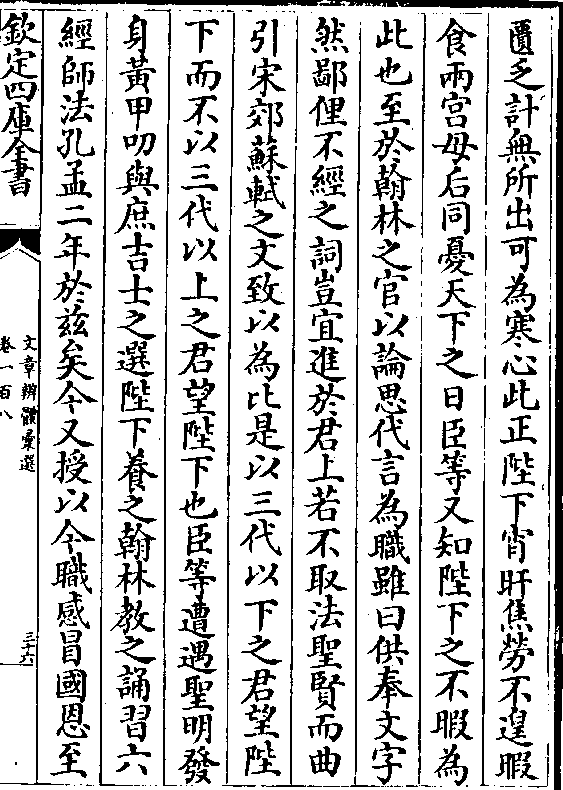 匱乏計無所出可為寒心此正陛下宵旰焦勞不遑暇
食兩宮母后同憂天下之日臣等又知陛下之不暇為
此也至於翰林之官以論思代言為職雖曰供奉文字
然鄙俚不經之詞豈宜進於君上若不取法聖賢而曲
引宋郊蘇軾之文致以為比是以三代以下之君望陛
下而不以三代以上之君望陛下也臣等遭遇聖明發
身黃甲叨與庶吉士之選陛下養之翰林教之誦習六
經師法孔孟二年於茲矣今又授以今職感冒國恩至
欽定四庫全書
文章辨體彙選
卷一百八
三十六